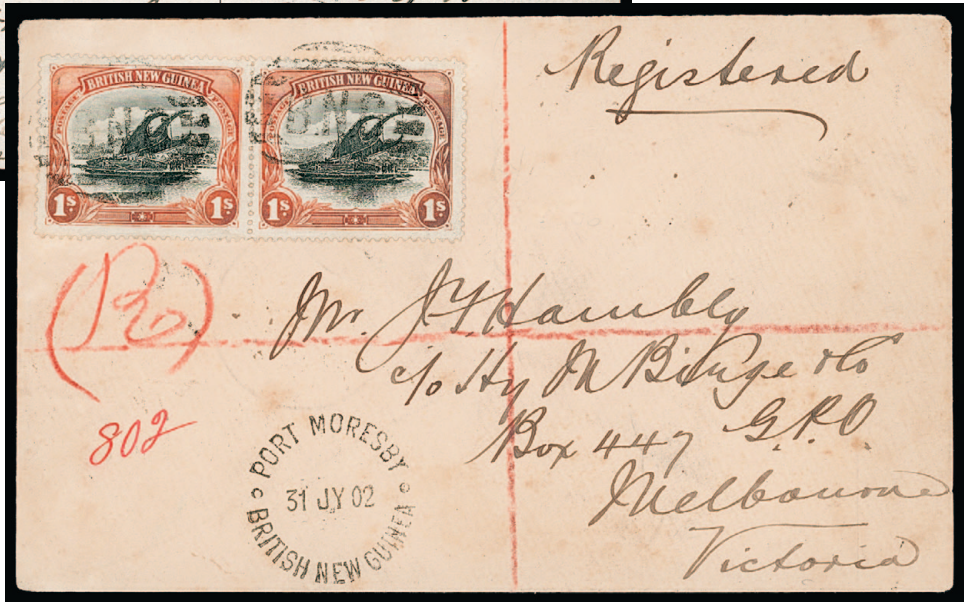 Registered
BRITISH NEW GUINEA
POSTAGE POSTAGE
1s. 1s.
BRITISH NEW GUINEA
POSTAGE POSTAGE
1s. 1s.
BNG
BNG
(R)
802
Mr. J Hambly
c/o Hy M Binge & Co
Box 447 G.P.O.
Melbourne
Victoria
PORT MORESBY
31 JY 02
BRITISH NEW GUINEA